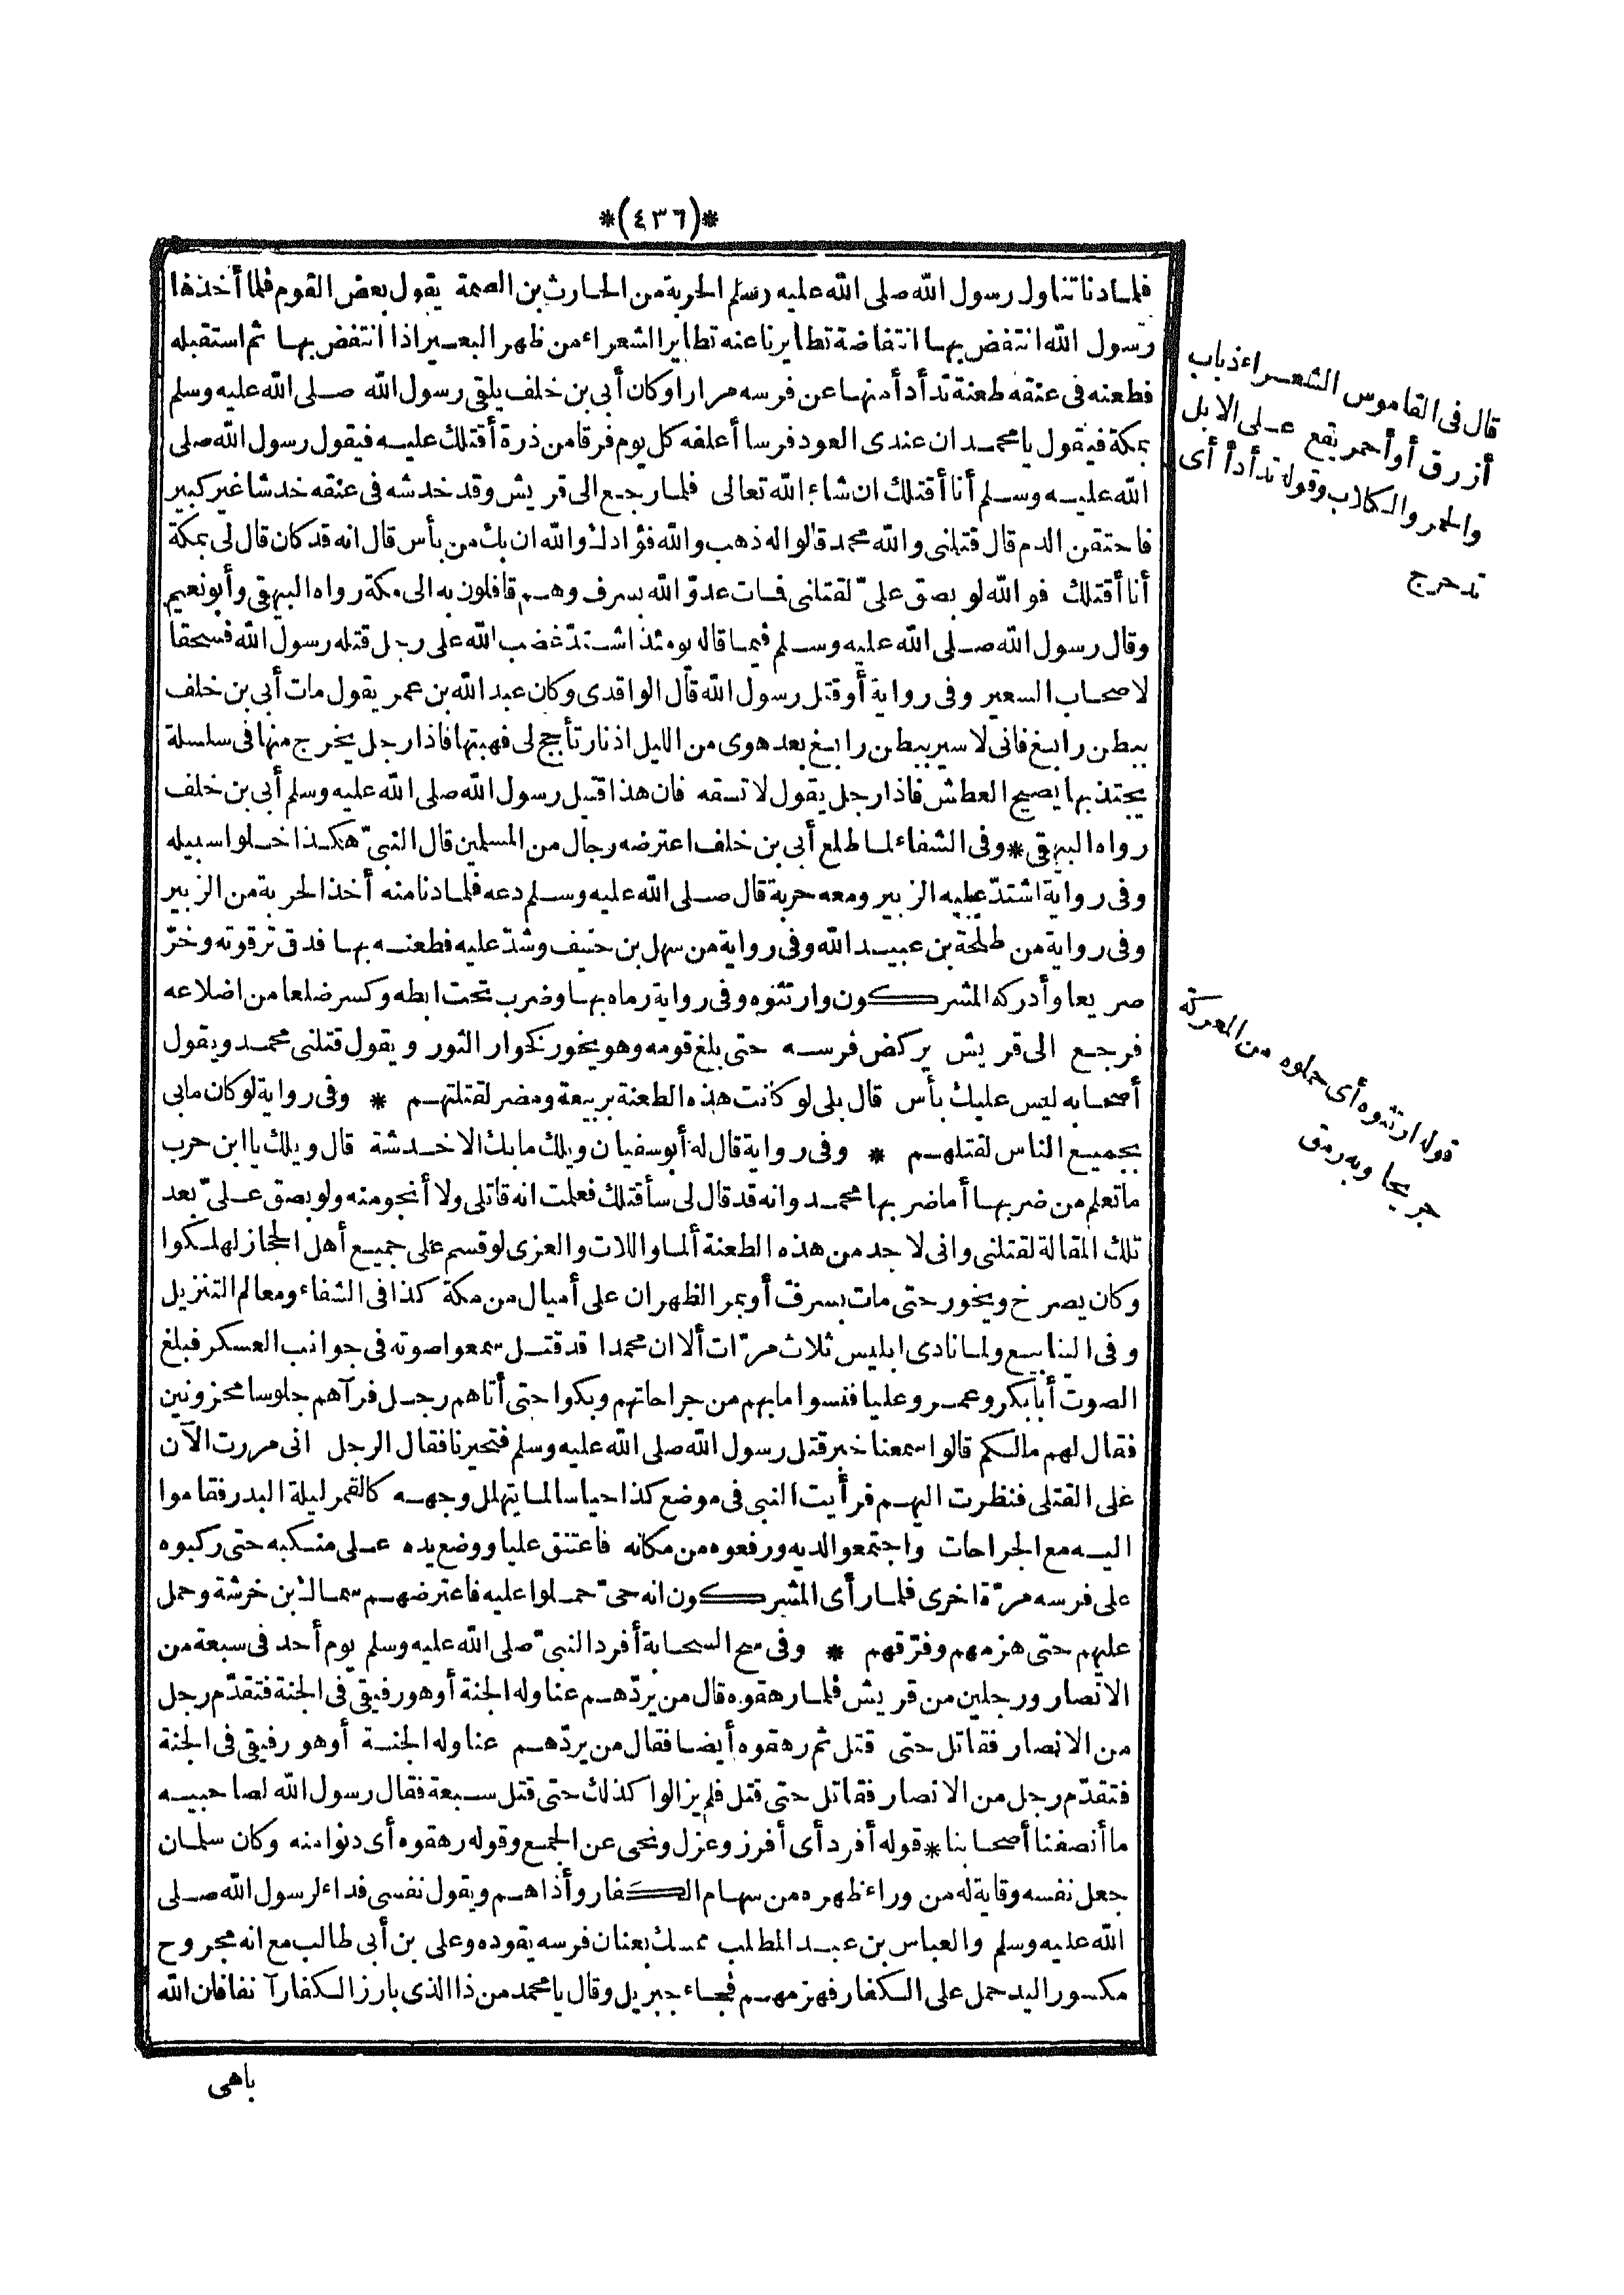 *(٤٣٦)*
فلما دنا تناول رسول الله صلى الله عليه وسلم الحربة من الحارث بن الصمة يقول بعض القوم فلما أخذها
رسول الله انتفض بها انتفاضة تطايرنا عنه تطاير الشعراء من ظهر البعير اذا انتفض بها ثم استقبله
فطعنه فى عنقه طعنة تدأدأ منها عن فرسه مرارا وكان أبى بن خلف يلقى رسول الله صلى الله عليه وسلم
بمكة فيقول يا محمد ان عندى العود فرسا أعلفه كل يوم فرقا من ذرة أقتلك عليه فيقول رسول الله صلى
الله عليه وسلم أنا أقتلك ان شاء الله تعالى فلما رجع الى قريش وقد خدشه فى عنقه خدشا غير كبير
فاحتقن الدم قال قتلنى والله محمد قالوا له ذهب والله فؤادك والله ان بك من بأس قال انه قد كان قال لى بمكة
أنا أقتلك فو الله لو بصق علىّ لقتلنى فات عدوّ الله بسرف وهم قافلون به الى مكة رواه البيهقى وأبو نعيم
وقال رسول الله صلى الله عليه وسلم فيما قاله يومئذ اشتدّ غضب الله على رجل قتله رسول الله فسحقا
لاصحاب السعير وفى رواية أو قتل رسول الله قال الواقدى وكان عبد الله بن عمر يقول مات أبى بن خلف
ببطن رابغ فانى لاسير ببطن رابغ بعد هوى من الليل اذ نار تأجج لى فهبتها فاذا رجل يخرج منها فى سلسلة
يجتذبها يصيح العطش فاذا رجل يقول لا تسقه فان هذا قتيل رسول الله صلى الله عليه وسلم أبى بن خلف
رواه البيهقى * وفى الشفاء لما طلع أبى بن خلف اعترضه رجال من المسلمين قال النبىّ هكذا خلوا سبيله
وفى رواية اشتدّ عليه الزبير ومعه حربة قال صلى الله عليه وسلم دعه فلما دنا منه أخذ الحربة من الزبير
وفى رواية من طلحة بن عبيد الله وفى رواية من سهل بن حنيف وشدّ عليه فطعنه بها فدق ترقوته وخرّ
صريعا وأدركه المشركون وارتثوه وفى رواية رماه بها وضرب تحت ابطه وكسر ضلعا من اضلاعه
فرجع الى قريش يركض فرسه حتى بلغ قومه وهو يخور كخوار الثور ويقول قتلنى محمد ويقول
أصحابه ليس عليك بأس قال بلى لو كانت هذه الطعنة بربيعة ومضر لقتلتهم * وفى رواية لو كان ما بى
بجميع الناس لقتلهم * وفى رواية قال له أبو سفيان ويلك ما بك الا خدشة قال ويلك يا ابن حرب
ما تعلم من ضربها أما ضربها محمد وانه قد قال لى سأقتلك فعلمت انه قاتلى ولا أنجو منه ولو بصق علىّ بعد
تلك المقالة لقتلنى وانى لاجد من هذه الطعنة ألما واللات والعزى لو قسم على جميع أهل الحجاز لهلكوا
وكان يصرخ ويخور حتى مات بسرف أو بمر الظهران على أميال من مكة كذا فى الشفاء ومعالم التنزيل
وفى الينابيع ولما نادى ابليس ثلاث مرّات ألا ان محمدا قد قتل سمعوا صوته فى جوانب العسكر فبلغ
الصوت أبا بكر وعمر وعليا فنسوا ما بهم من جراحاتهم وبكوا حتى أتاهم رجل فرآهم جلوسا محزونين
فقال لهم مالكم قالوا سمعنا خبر قتل رسول الله صلى الله عليه وسلم فتحيرنا فقال الرجل انى مررت الآن
على القتلى فنظرت اليهم فرأيت النبى فى موضع كذا حيا سالما يتهلل وجهه كالقمر ليلة البدر فقاموا
اليه مع الجراحات واجتمعوا لديه ورفعوه من مكانه فاعتنق عليا ووضع يده على منكبه حتى ركبوه
على فرسه مرّة اخرى فلما رأى المشركون انه حىّ حملوا عليه فاعترضهم سماك بن خرشة وحمل
عليهم حتى هزمهم وفرّقهم * وفى سح السحابة أفرد النبىّ صلى الله عليه وسلم يوم أحد فى سبعة من
الانصار ورجلين من قريش فلما رهقوه قال من يردّهم عنا وله الجنة أو هو رفيقى فى الجنة فتقدّم رجل
من الانصار فقاتل حتى قتل ثم رهقوه أيضا فقال من يردّهم عنا وله الجنة أو هو رفيقى فى الجنة
فتقدّم رجل من الانصار فقاتل حتى قتل فلم يزالوا كذلك حتى قتل سبعة فقال رسول الله لصاحبيه
ما أنصفنا أصحابنا * قوله أفرد أى أفرز وعزل ونحى عن الجمع وقوله رهقوه أى دنوا منه وكان سلمان
جعل نفسه وقاية له من وراء ظهره من سهام الكفار وأذاهم ويقول نفسى فداء لرسول الله صلى
الله عليه وسلم والعباس بن عبد المطلب ممسك بعنان فرسه يقوده وعلى بن أبى طالب مع انه مجروح
مكسور اليد حمل على الكفار فهزمهم فجاء جبريل وقال يا محمد من ذا الذى بارز الكفار آنفا فان الله
باهى
قال فى القاموس الشعراء ذباب
أزرق أو أحمر يقع على الابل
والحمر والكلاب وقوله تدأدأ أى
تدحرج
قوله ارتثوه أى حملوه من المعركة
جريحا وبه رمق